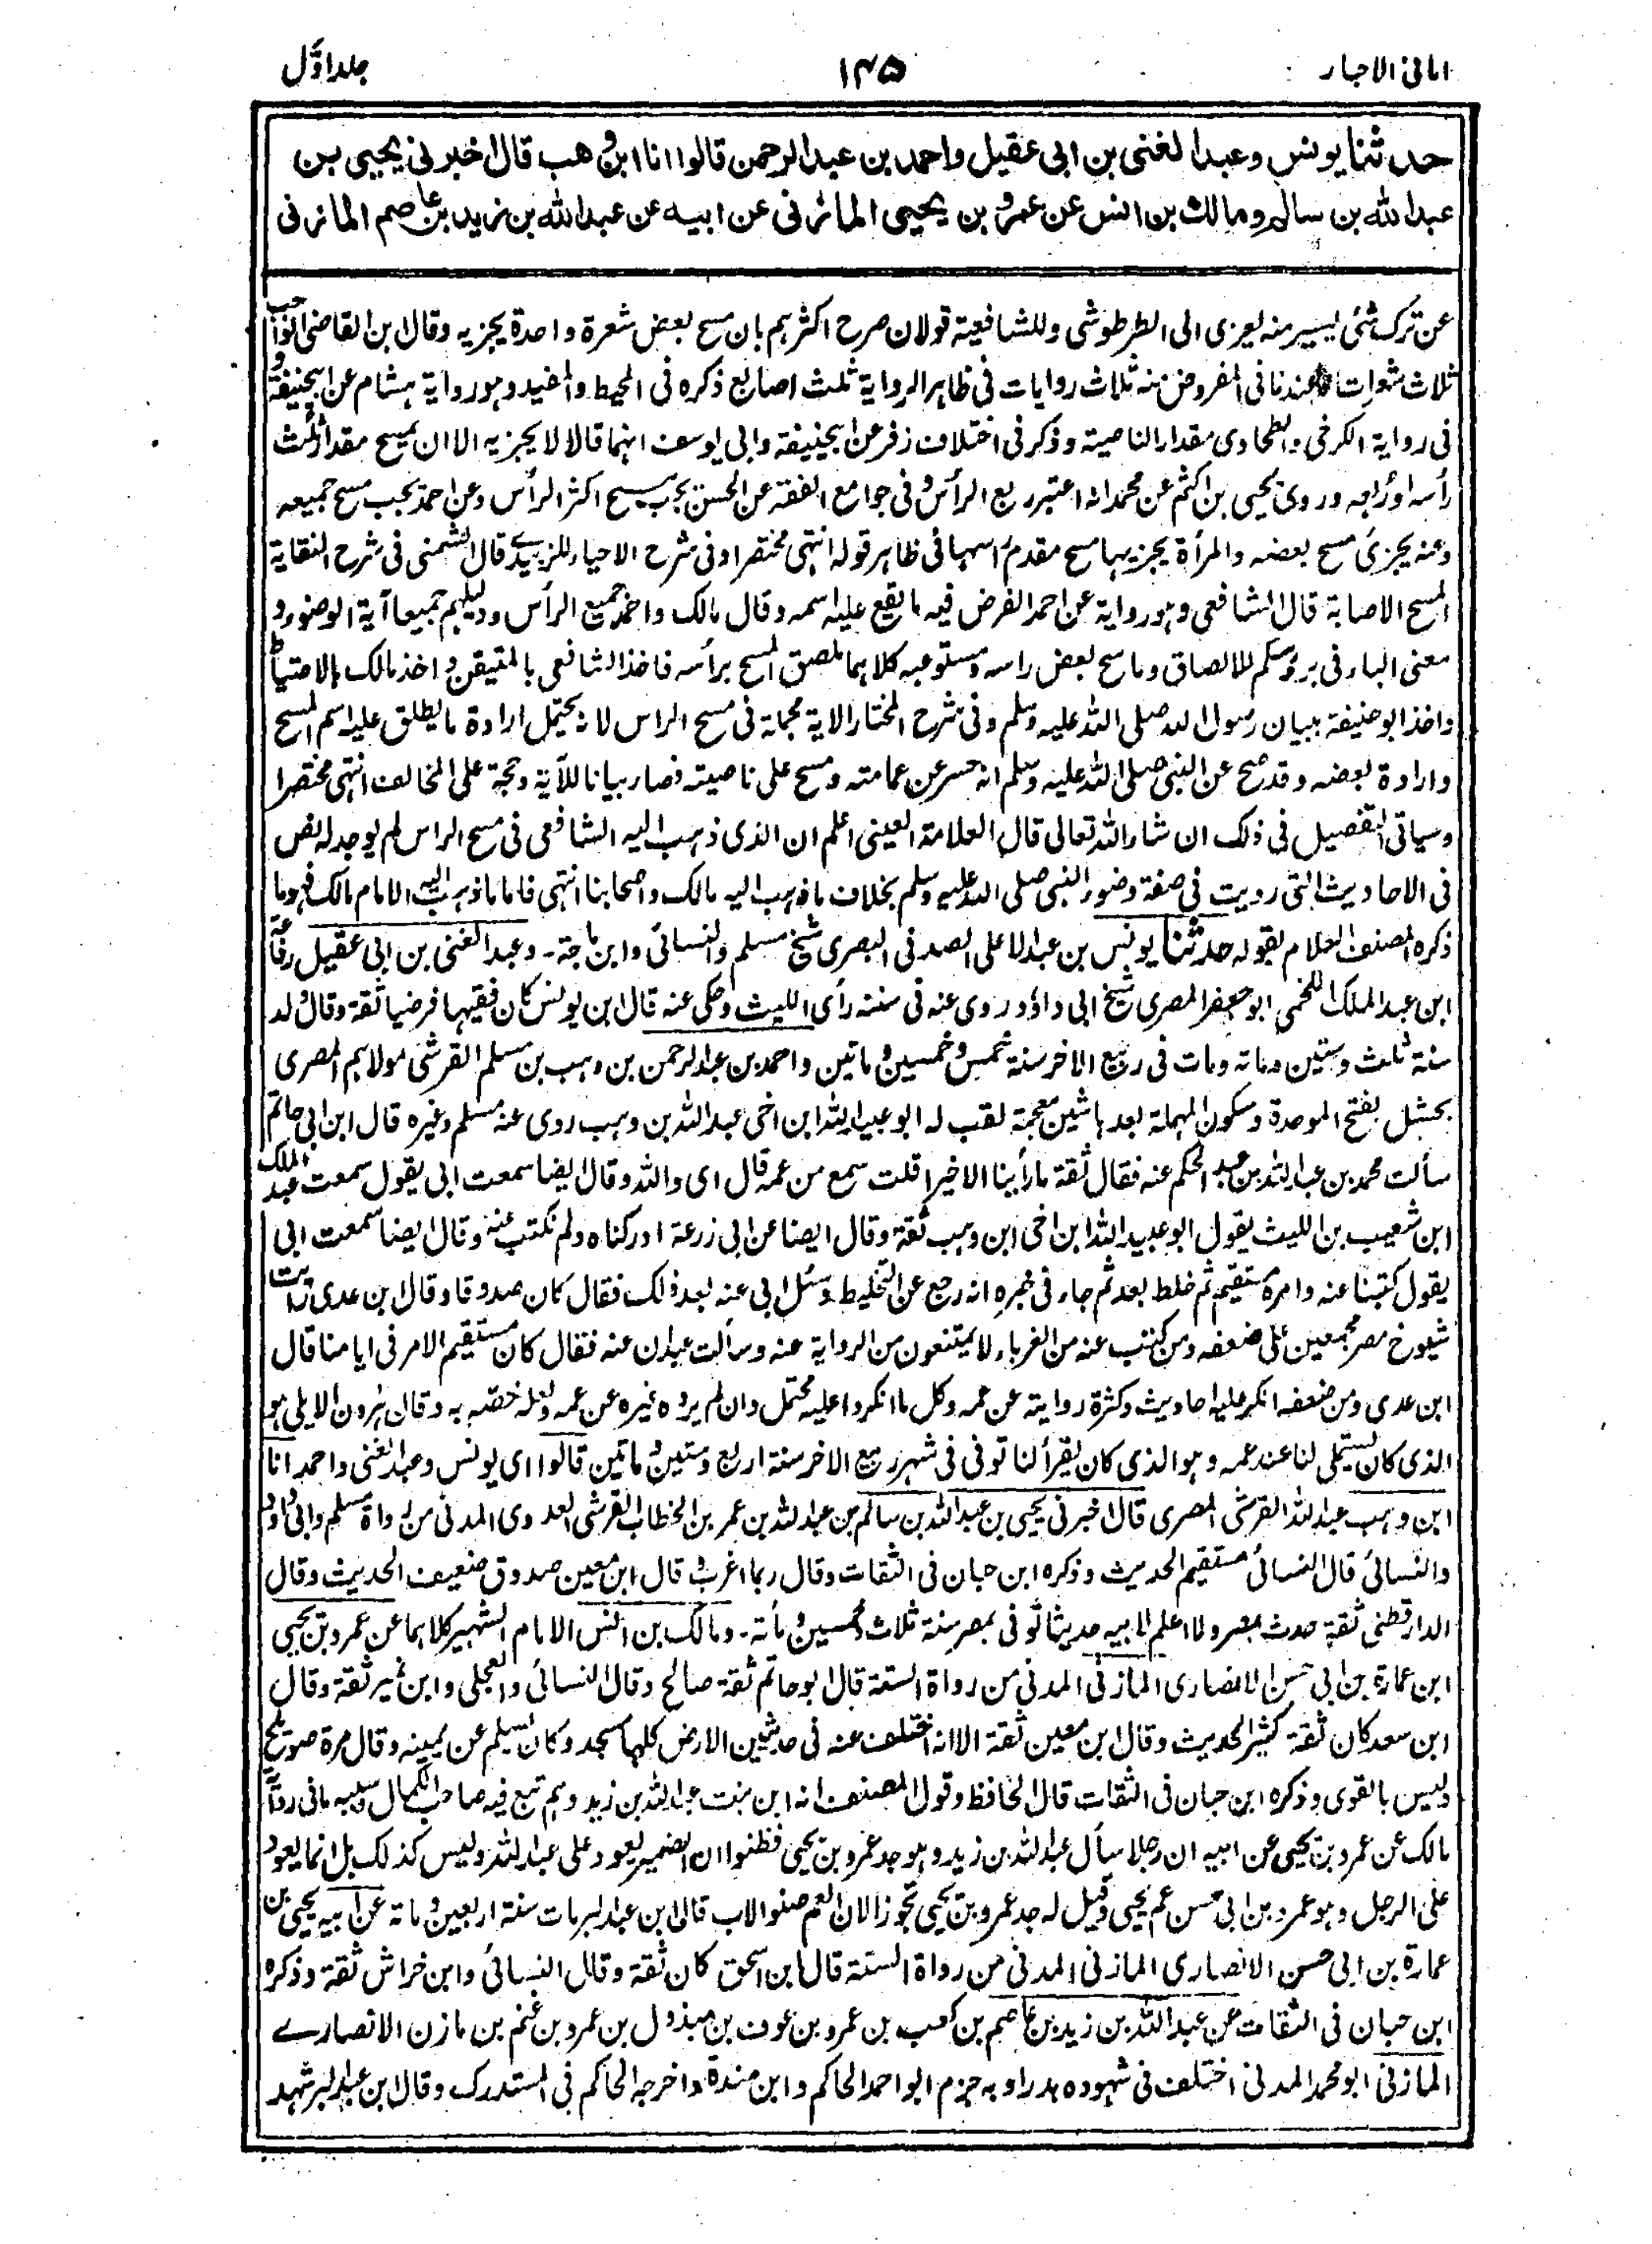 امانی الاحبار
۱۴۵
جلد اوّل
حدثنا یونس وعبد الغنی بن ابی عقیل واحمد بن عبد الرحمن قالوا انا ابن وهب قال اخبرنی یحیی بن
عبد الله بن سالم ومالك بن انس عن عمرو بن یحیی المازنی عن ابیه عن عبد الله بن زید بن عاصم المازنی
عن ترک شئی یسیر منه یعزی الی الطرطوشی وللشافعیة قولان صرح اکثرهم بان مسح بعض شعرة واحدة یجزیه وقال ابن القاضی الواجب
ثلاث شعرات وعندنا فی المفروض منه ثلاث روایات فی ظاهر الروایة ثلث اصابع ذکره فی المحیط والمفید وهو روایة هشام عن ابیحنیفة و
فی روایة الکرخی والطحاوی مقدار الناصیة وذکر فی اختلاف زفر عن ابیحنیفة وابی یوسف انهما قالا لا یجزیه الا ان یمسح مقدار ثلث
رأسه او ربعه وروی یحیی بن اکثم عن محمد انه اعتبر ربع الرأس وفی جوامع الفقه عن الحسن یجب مسح اکثر الرأس وعن احمد یجب مسح جمیعه
وعنه یجزئ مسح بعضه والمرأة یجزیها مسح مقدم رأسها فی ظاهر قوله انتهی مختصرا وفی شرح الاحیاء للزبیدے قال الشمنی فی شرح النقایة
المسح الاصابة قال الشافعی وهو روایة عن احمد الفرض فیه ما یقع علیه اسمه وقال مالک واحمد جمیع الرأس ودلیلهم جمیعا آیة الوضوء و
معنی الباء فی برؤسکم للالصاق وماسح بعض راسه ومستوعبه کلاهما ملصق المسح برأسه فاخذ الشافعی بالمتیقن واخذ مالک بالاحتیاط
واخذ ابوحنیفة ببیان رسول الله صلی الله علیه وسلم وفی شرح المختار الایة مجملة فی مسح الراس لانه یحتمل ارادة ما یطلق علیه اسم المسح
وارادة بعضه وقد صح عن النبی صلی الله علیه وسلم انه حسر عن عمامته ومسح علی ناصیته فصار بیانا للآیة وحجة علی المخالف انتهی مختصرا
وسیاتی التفصیل فی ذلک ان شاء الله تعالی قال العلامة العینی اعلم ان الذی ذهب الیه الشافعی فی مسح الراس لم یوجد له نص
فی الاحادیث التی رویت فی صفة وضوء النبی صلی الله علیه وسلم بخلاف ما ذهب الیه مالک واصحابنا انتهی فاما ما ذهب الیه الامام مالک فهو ما
ذکره المصنف العلام بقوله حدثنا یونس بن عبد الاعلی الصدفی البصری شیخ مسلم والنسائی وابن ماجة۔ وعبد الغنی بن ابی عقیل رفاعة
ابن عبد الملک اللخمی ابو جعفر المصری شیخ ابی داؤد روی عنه فی سننه رأی اللیث وحکی عنه قال ابن یونس کان فقیها فرضیا ثقة وقال ولد
سنة ثلث وستین ومائة ومات فی ربیع الاخر سنة خمس وخمسین ومأتین واحمد بن عبد الرحمن بن وهب بن مسلم القرشی مولاهم المصری
بحشل بفتح الموحدة وسکون المهملة بعدها شین معجمة لقب له ابو عبید الله ابن اخی عبد الله بن وهب روی عنه مسلم وغیره قال ابن ابی حاتم
سألت محمد بن عبد الله بن عبد الحکم عنه فقال ثقة ما رأینا الا خیرا قلت سمع من عمه قال ای والله وقال ایضا سمعت ابی یقول سمعت عبد الملک
ابن شعیب بن اللیث یقول ابو عبید الله ابن اخی ابن وهب ثقة وقال ایضا عن ابی زرعة ادرکناه ولم نکتب عنه وقال ایضا سمعت ابی
یقول کتبنا عنه وامره مستقیم ثم خلط بعد ثم جاء فی خبره انه رجع عن التخلیط وسئل ابی عنه بعد ذلک فقال کان صدوقا وقال ابن عدی رأیت
شیوخ مصر مجمعین علی ضعفه ومن کتب عنه من الغرباء لا یمتنعون من الروایة عنه وسألت عبدان عنه فقال کان مستقیم الامر فی ایامنا قال
ابن عدی ومن ضعفه انکر علیه احادیث وکثرة روایته عن عمه وکل ما انکروا علیه محتمل وان لم یروه غیره عن عمه ولعله خصّه به وقال هٰرون الایلی هو
الذی کان یستملی لنا عند عمه وهو الذی کان یقرأ لنا توفی فی شهر ربیع الاخر سنة اربع وستین ومأتین قالوا ای یونس وعبد الغنی واحمد انا
ابن وهب عبد الله القرشی المصری قال اخبرنی یحیی بن عبد الله بن سالم بن عبد الله بن عمر بن الخطاب القرشی العدوی المدنی من رواة مسلم وابی داؤد
والنسائی قال النسائی مستقیم الحدیث وذکره ابن حبان فی الثقات وقال ربما اغرب قال ابن معین صدوق ضعیف الحدیث وقال
الدارقطنی ثقة حدث بمصر ولا اعلم لابیه حدیثا توفی بمصر سنة ثلاث وخمسین ومأته۔ ومالک بن انس الامام الشهیر کلاهما عن عمرو بن یحیی
ابن عمارة بن ابی حسن الانصاری المازنی المدنی من رواة الستة قال ابو حاتم ثقة صالح وقال النسائی والعجلی وابن نمیر ثقة وقال
ابن سعد کان ثقة کثیر الحدیث وقال ابن معین ثقة الا انه اختلف عنه فی حدیثین الارض کلها مسجد وکان یسلم عن یمینه وقال مرة صویلح
ولیس بالقوی وذکره ابن حبان فی الثقات قال الحافظ وقول المصنف انه ابن بنت عبد الله بن زید وهم تبع فیه صاحب الکمال وسببه ما فی روایة
مالک عن عمرو بن یحیی عن ابیه ان رجلا سأل عبد الله بن زید وهو جد عمرو بن یحیی فظنوا ان الضمیر یعود علی عبد الله ولیس کذلک بل انما یعود
علی الرجل وهو عمرو بن ابی حسن عم یحیی وقیل له جد عمرو بن یحیی تجوزا لان العم صنو الاب قال ابن عبد البر مات سنة اربعین ومائة عن ابیه یحیی بن
عمارة بن ابی حسن الانصاری المازنی المدنی من رواة الستة قال ابن اسحق کان ثقة وقال النسائی وابن خراش ثقة وذکره
ابن حبان فی الثقات عن عبد الله بن زید بن عاصم بن کعب بن عمرو بن عوف بن مبذول بن عمرو بن غنم بن مازن الانصارے
المازنی ابو محمد المدنی اختلف فی شهوده بدرا وبه جزم ابو احمد الحاکم وابن مندة واخرجه الحاکم فی المستدرک وقال ابن عبد البر شهد